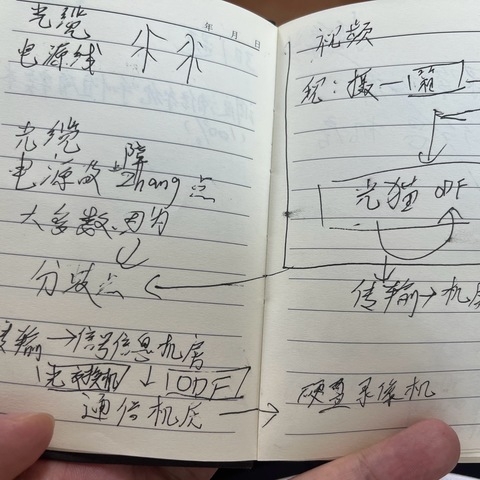 年 月 日
光缆
电源线
光缆
电源故障点
Zhang
大多数,因为
分歧点
传输→信号信息机房
光交换机 ↓ ODF
通信机房 →
视频
现:摄一箱一
光猫 ODF
传输→机房
硬盘录像机